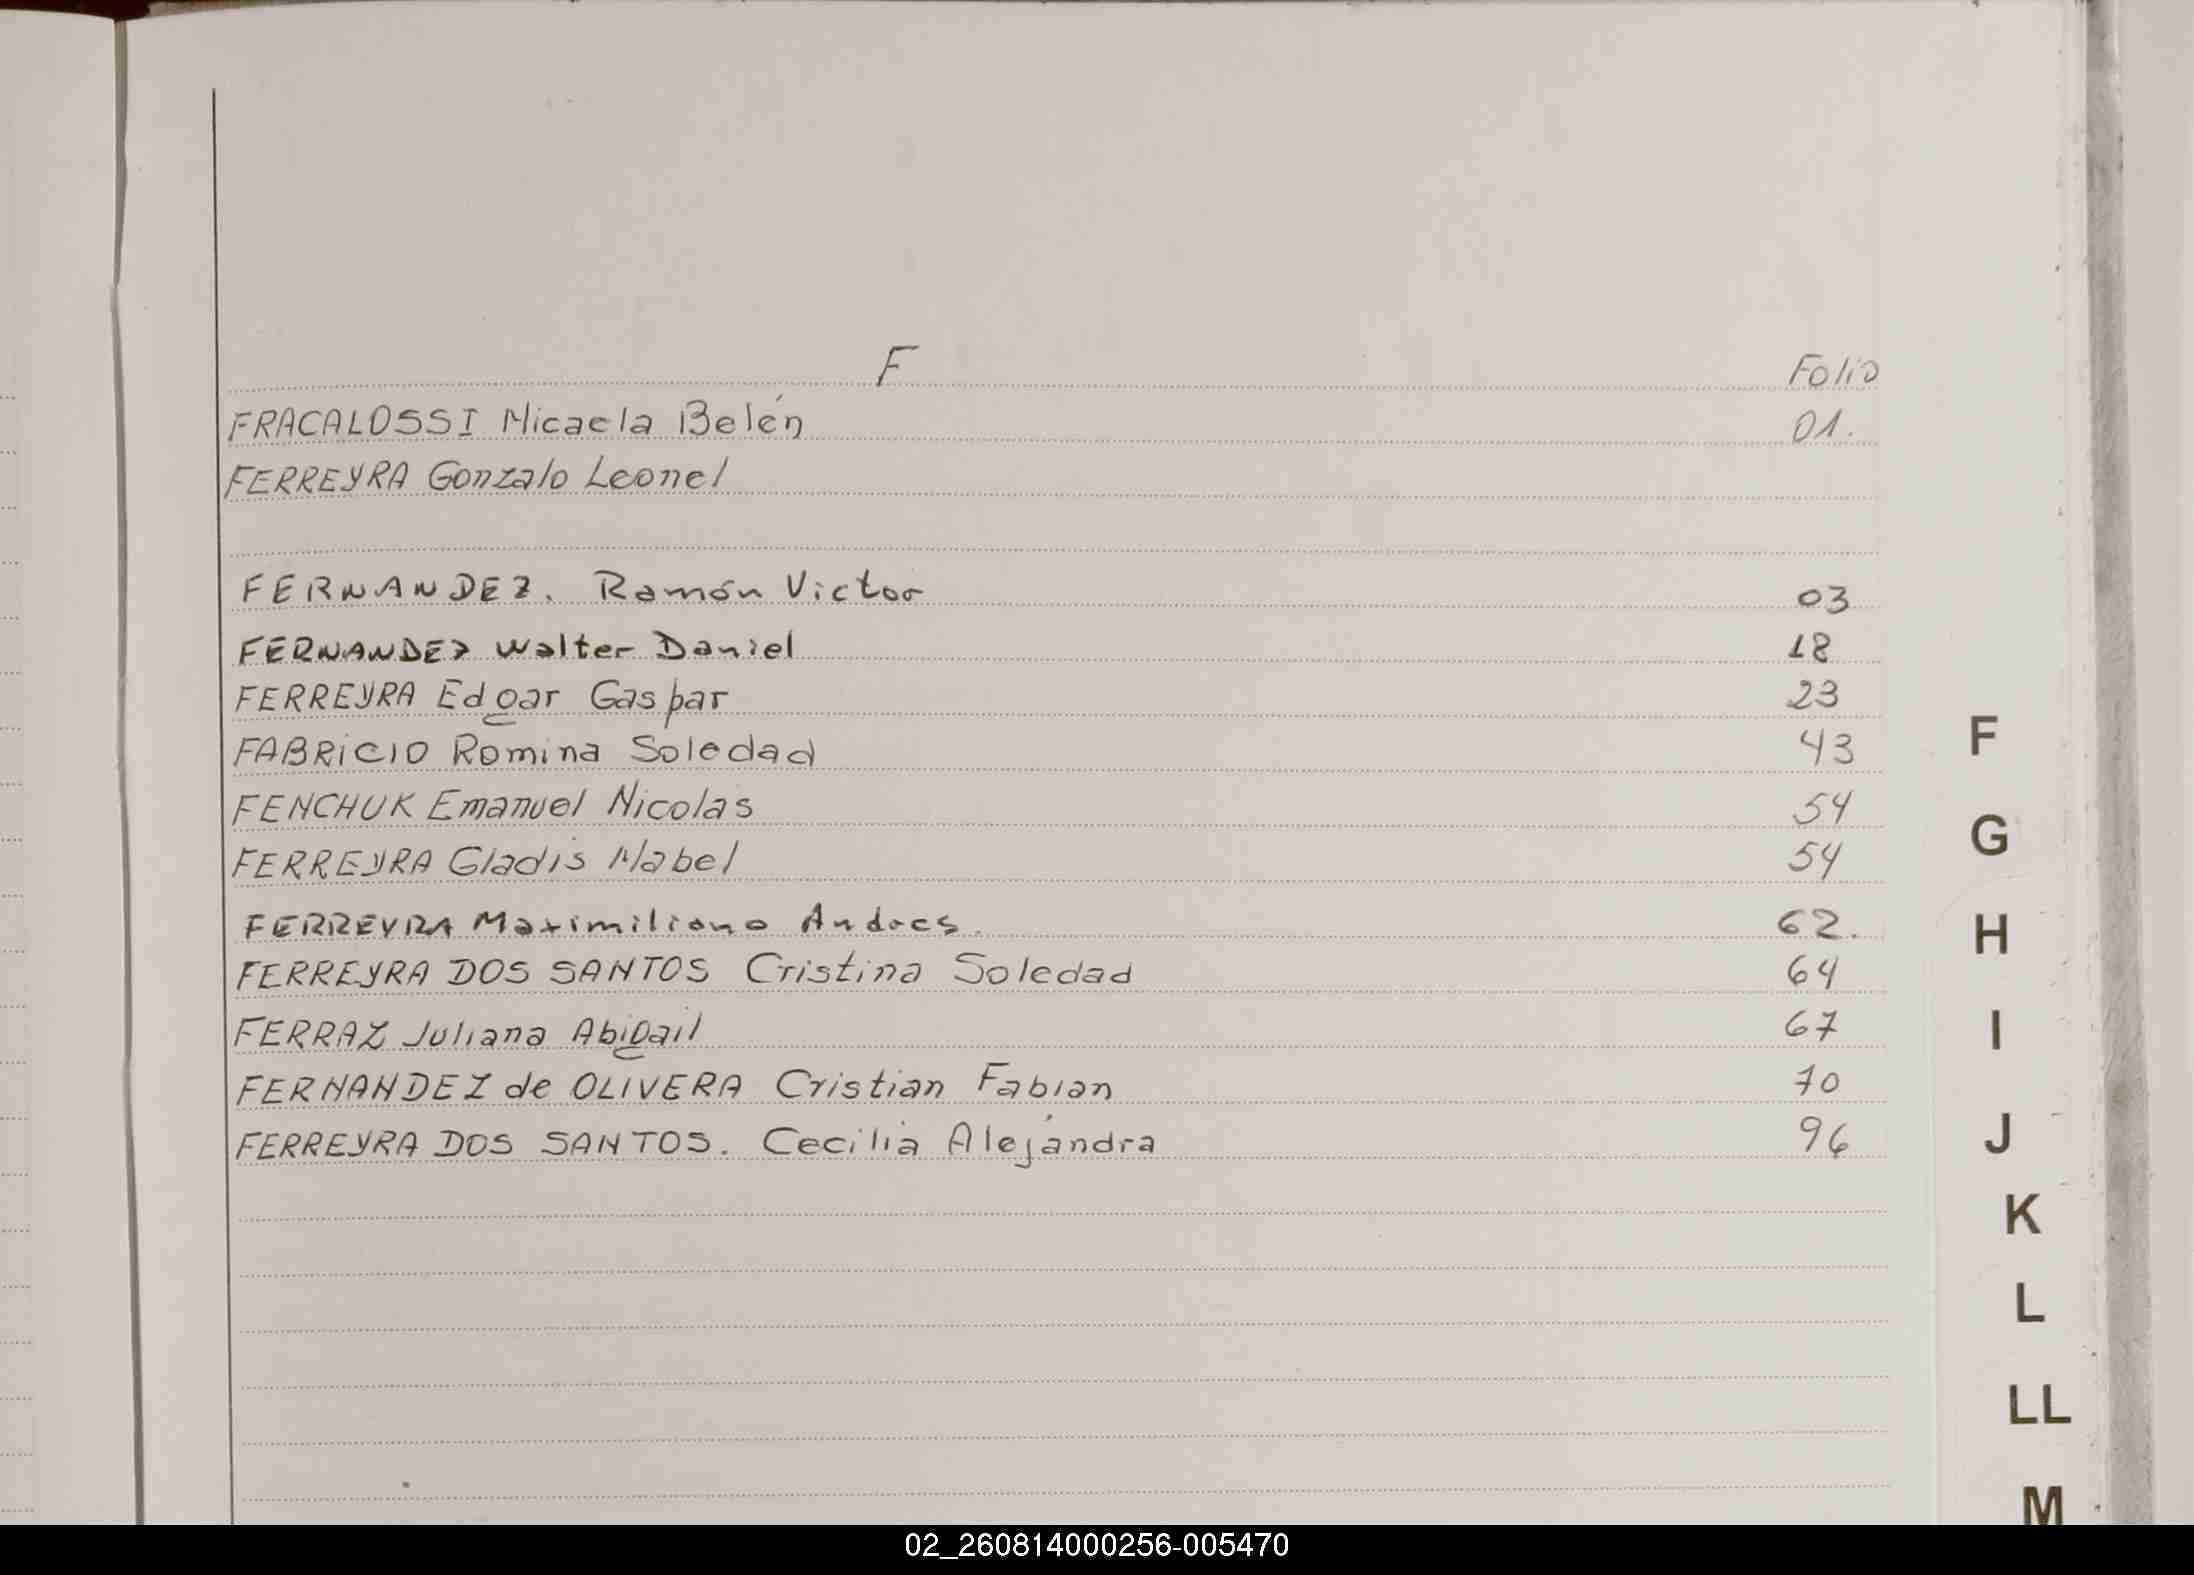 F Folio
FRACALOSSI Micaela Belén 01.
FERREYRA Gonzalo Leonel
FERNANDEZ. Ramón Victor 03
FERNANDEZ Walter Daniel 18
FERREYRA Edgar Gaspar 23
FABRiCIO Romina Soledad 43
FENCHUK Emanuel Nicolas 54
FERREYRA Gladis Mabel 54
FERREYRA Maximiliano Andres. 62.
FERREYRA DOS SANTOS Cristina Soledad 64
FERRAZ Juliana Abigail 67
FERNANDEZ de OLIVERA Cristian Fabian 70
FERREYRA DOS SANTOS. Cecilia Alejandra 96
F
G
H
I
J
K
L
LL
M
02_260814000256-005470